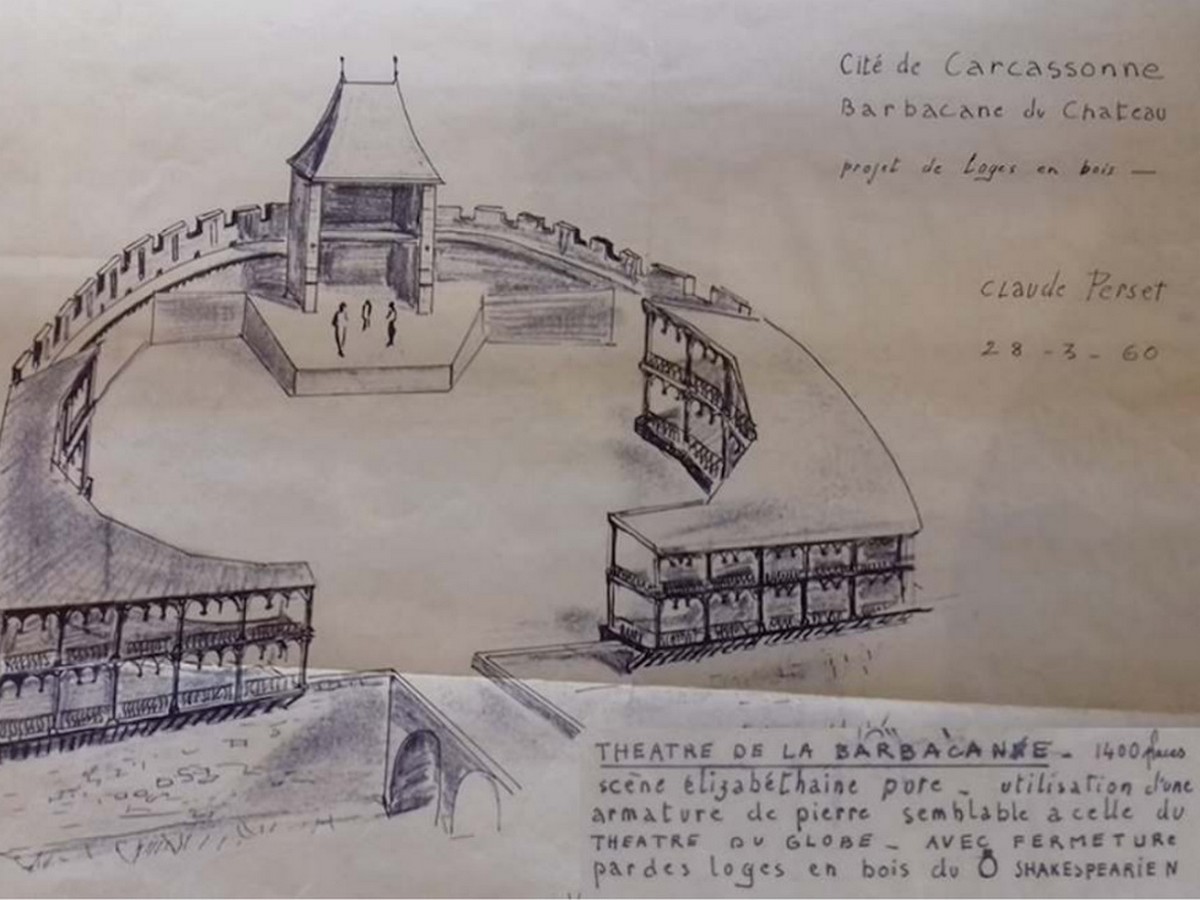 Cité de Carcassonne
Barbacane du Chateau
projet de loges en bois —
Claude Perset
28-3-60
THEATRE DE LA BARBACANNE - 1400 places
scène élizabéthaine pure - utilisation d'une
armature de pierre semblable a celle du
THEATRE DU GLOBE - AVEC FERMETURE
par des loges en bois du O SHAKESPEARIEN